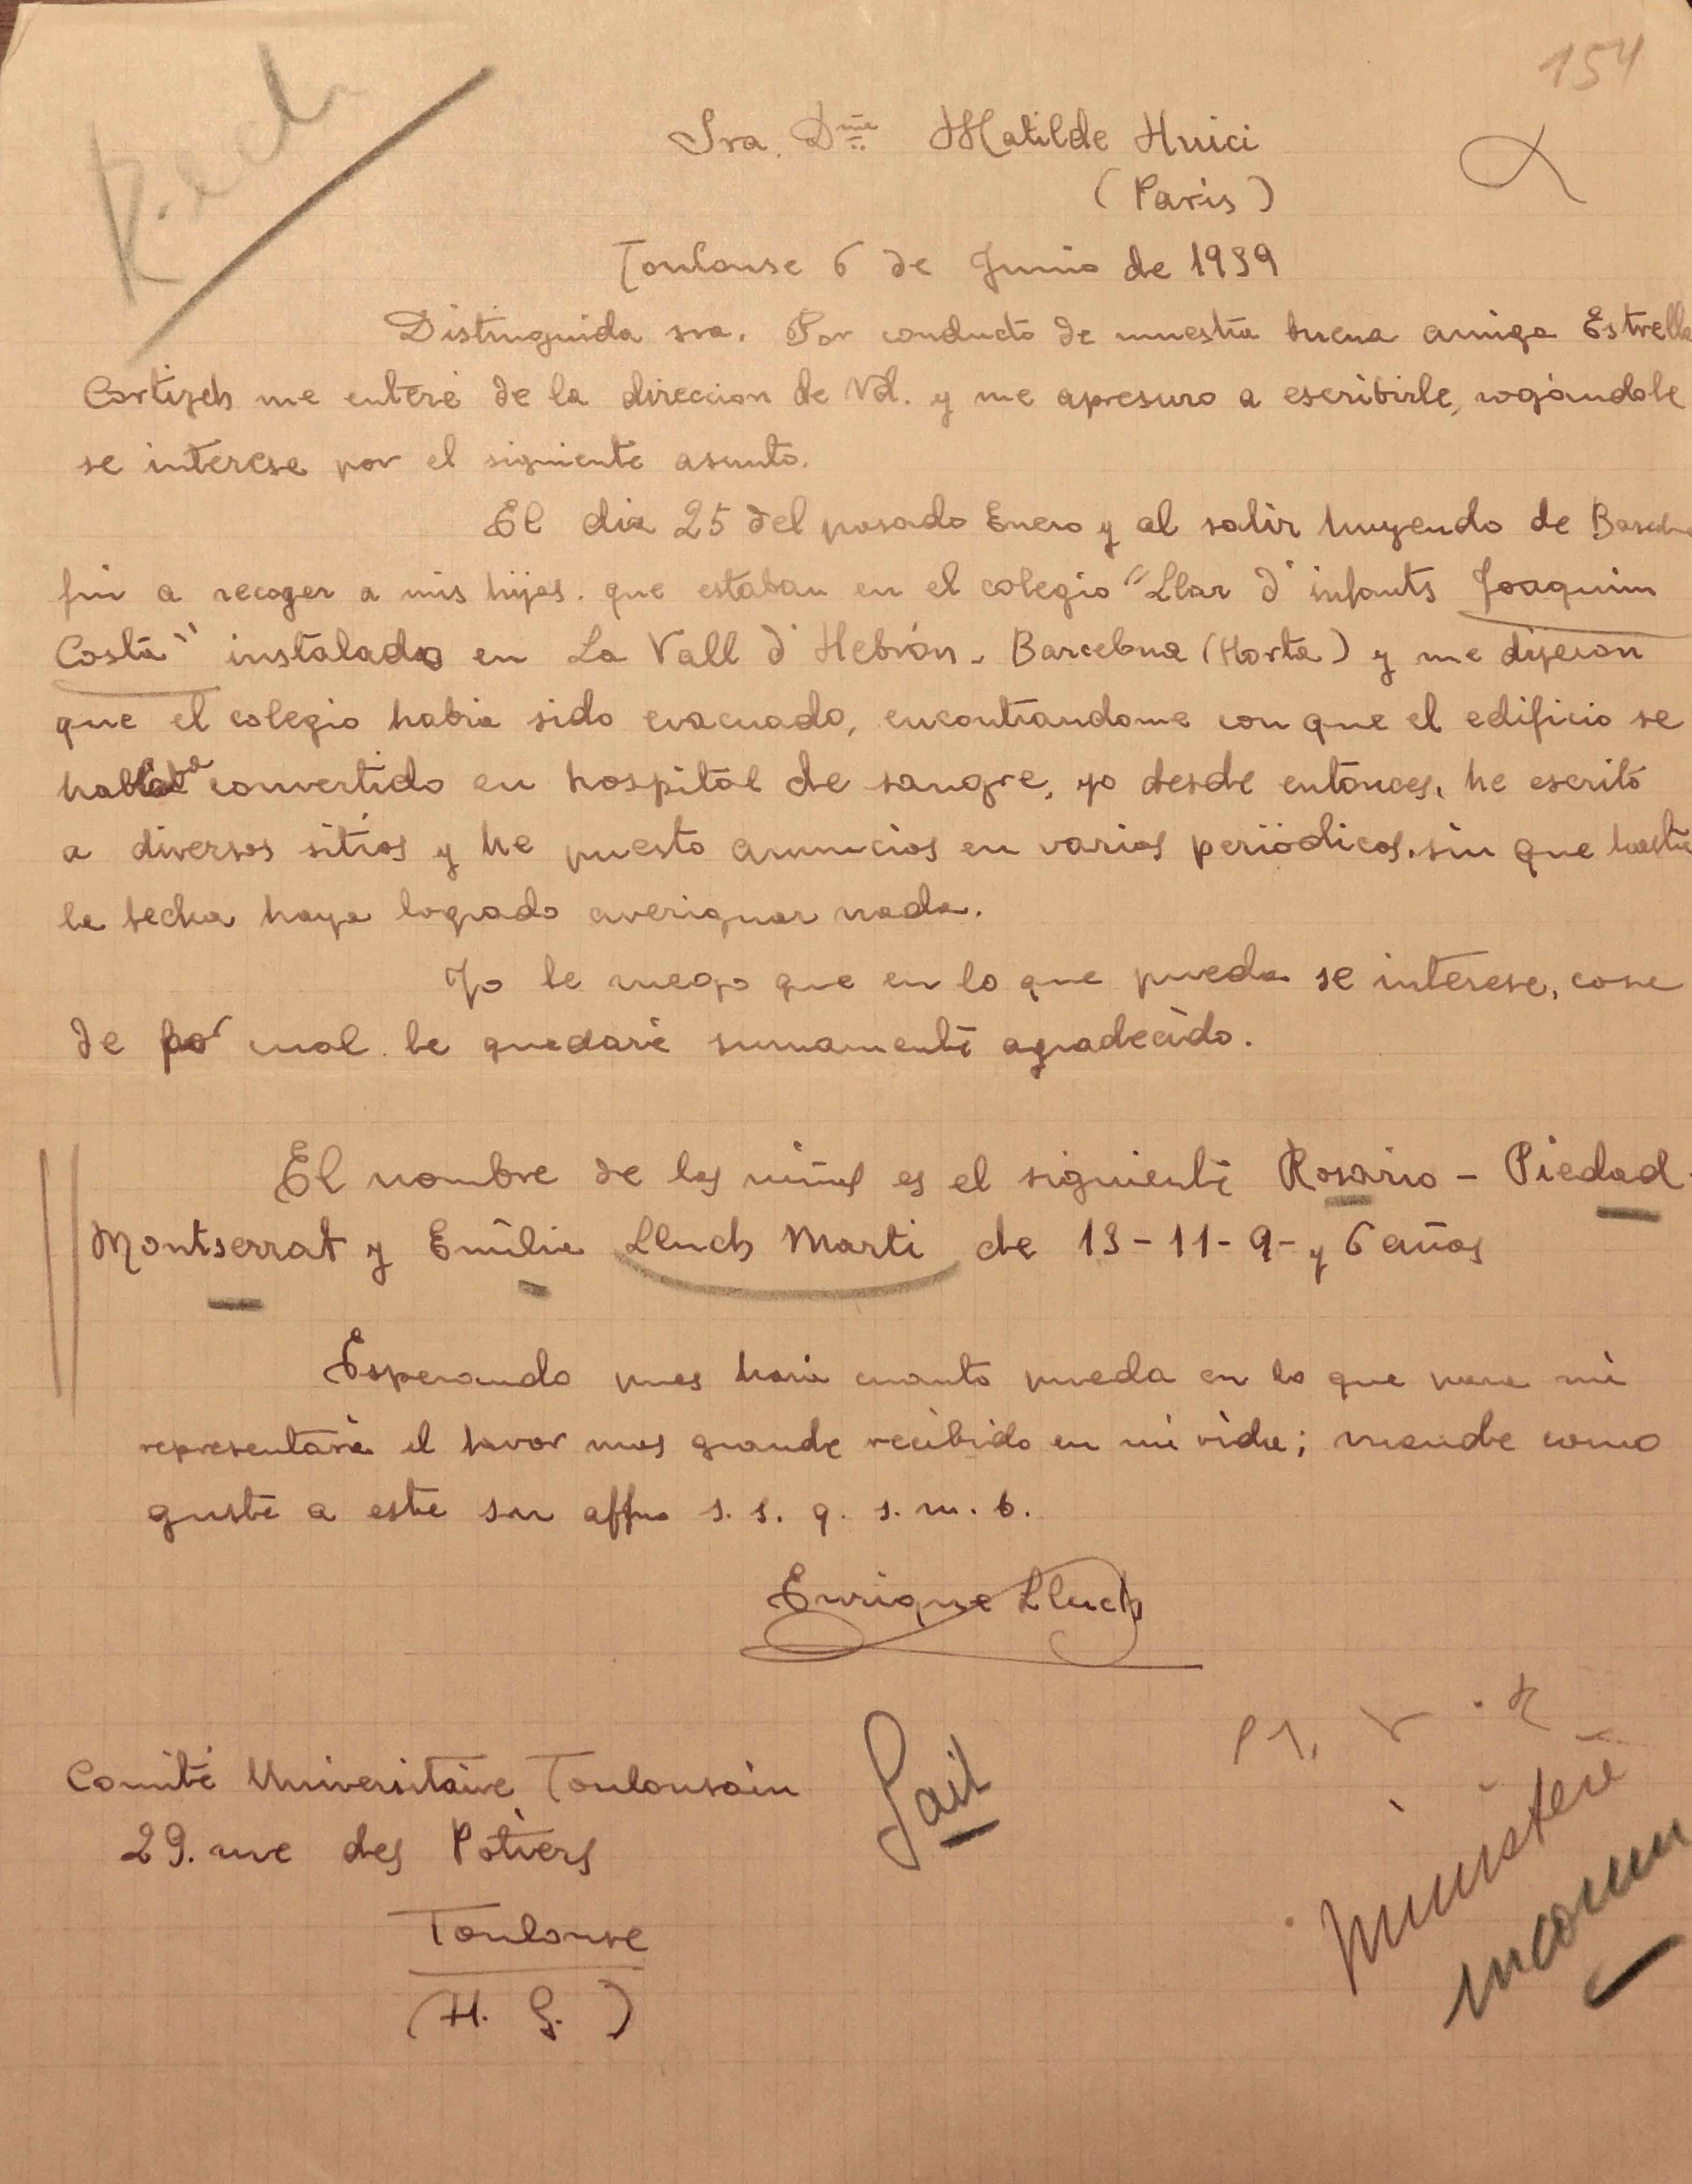 154
Sra. Dña Matilde Huici
(Paris)
Toulouse 6 de Junio de 1939
Distinguida sra. Por conducto de nuestra buena amiga Estrella
Cortizch me enteré de la direccion de Vd. y me apresuro a escribirle, rogándole
se interese por el siguiente asunto.
El dia 25 del pasado Enero y al salir huyendo de
fui a recoger a mis hijos. que estaban en el colegio "Llar d' infants Joaquim
Costa" instalado en La Vall d' Hebrón. Barcelona (Horta) y me dijeron
que el colegio habia sido evacuado, encontrandome con que el edificio se
hallaba convertido en hospital de sangre, yo desde entonces, he escrito
a diversos sitios y he puesto anuncios en varios periódicos, sin que hasta
la fecha haya logrado averiguar nada.
Yo le ruego que en lo que pueda se interese, cosa
de por cual le quedaré sumamente agradecido.
El nombre de los niños es el siguiente Rosario - Piedad -
Montserrat y Emilia Lluch Marti de 13 - 11 - 9 - y 6 años
Esperando pues hará cuanto pueda en lo que para mi
representaria el favor mas grande recibido en mi vida; mande como
guste a este su affmo s. s. q. s. m. b.
Enrique Lluch
Comité Universitaire Toulousain
29. rue des Potiers
Toulouse
(H. G.)
Fait
Ministère
inconnu